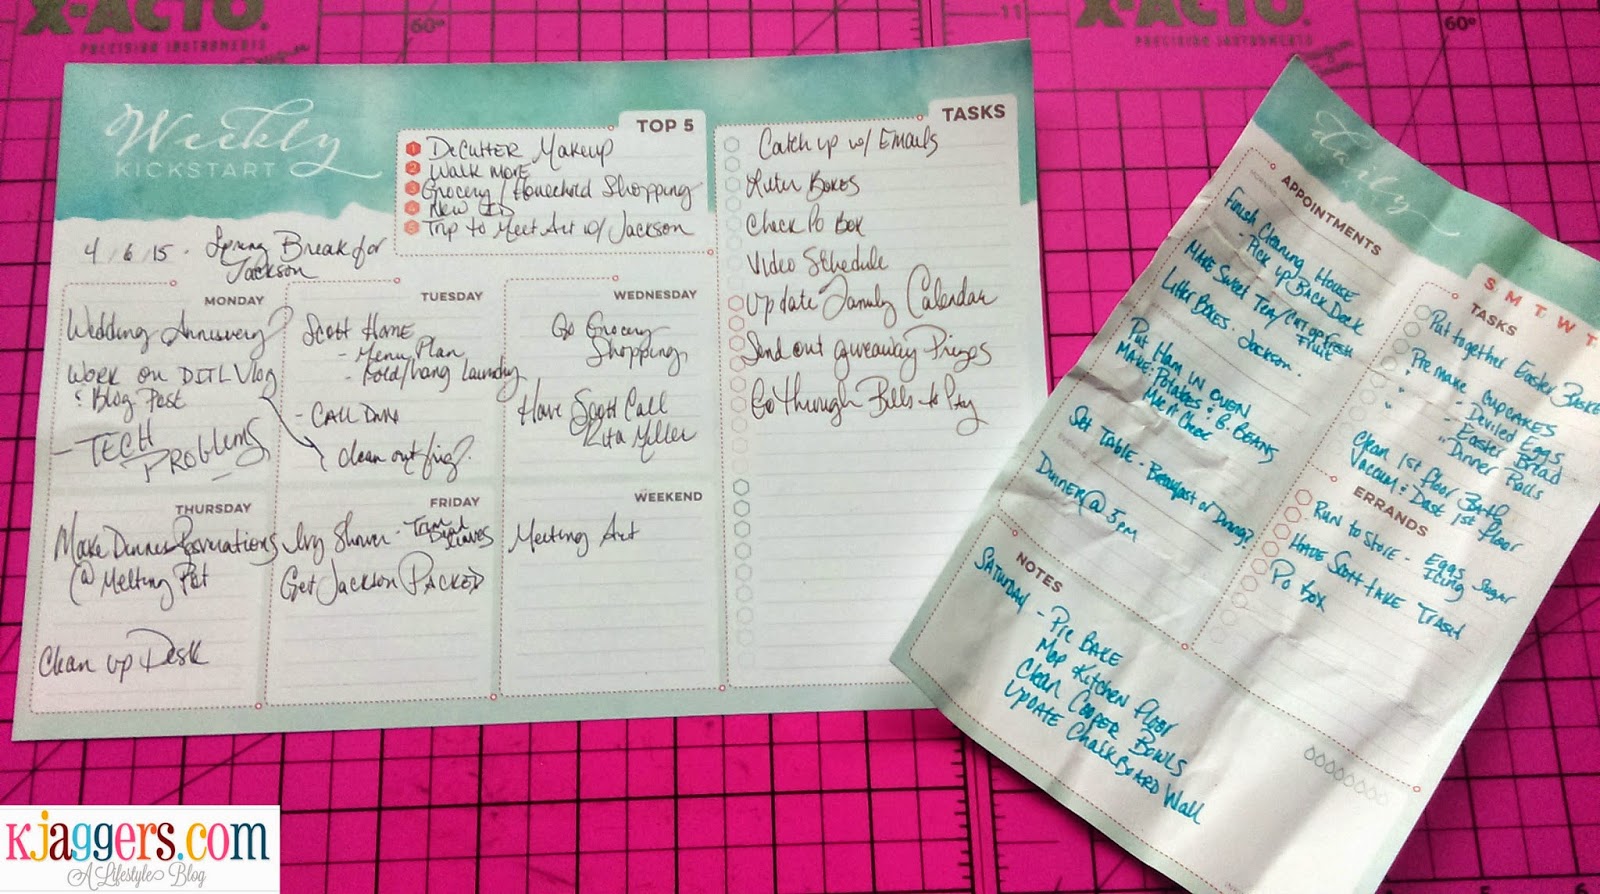 X-ACTO
PRECISION INSTRUMENTS
60°
11
X-ACTO
60°
Weekly
KICKSTART
4/6/15 - Spring Break for
Jackson
TOP 5
1 DeClutter Makeup
2 Walk more
3 Grocery / Household Shopping
4 New ID
5 Trip to Meet Art w/ Jackson
TASKS
Catch up w/ Emails
Litter Boxes
Check Po Box
Video Schedule
Update Family Calendar
Send out giveaway Prizes
Go Through Bills to Pay
MONDAY
Wedding Anniversery
Work on DITL Vlog
& Blog Post
- TECH
PROBLEMS
TUESDAY
Scott Home
- Menu Plan
- Fold/hang laundry
- CALL
clean out frig
WEDNESDAY
Go Grocery
Shopping
Have Scott Call
Rita Miller
THURSDAY
Make Dinner Reservations
@ Melting Pot
Clean up Desk
FRIDAY
Ivy Shower - Trim
Get Jackson PACKED
WEEKEND
Meeting Art
daily
APPOINTMENTS
Finish Cleaning House
- Pick up Back Deck
Make Sweet Tea/Cut up Fresh
Fruit
Litter Boxes - Jackson.
Put Ham in oven
Make: Potatoes & G Beans
Mac n Chee
Set Table - Breakfast or Dining?
Dinner @ 5pm
S M T W T
TASKS
Put together Easter Baske
Premake Cupcakes
" - Deviled Eggs
" - Easter Bread
" " Dinner Rolls
Clean 1st floor Bath
Vacuum & Dust 1st Floor
ERRANDS
Run to Store - Eggs Sugar
Icing
Have Scott take Trash
Po Box
NOTES
Saturday - Pre Bake
Mop Kitchen floor
Clean Cooper Bowls
Update Chalkboard Wall
kjaggers.com
A Lifestyle Blog